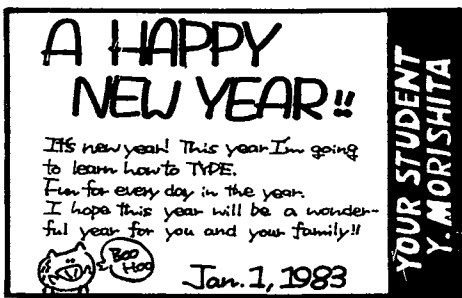 A HAPPY
NEW YEAR!!
It's new year! This year I'm going
to learn how to TYPE.
Fun for every day in the year.
I hope this year will be a wonder-
ful year for you and your family!!
BOO
HOO
Jan. 1, 1983
YOUR STUDENT
Y. MORISHITA